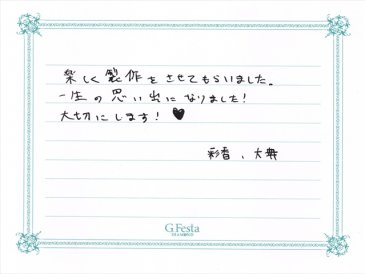 楽しく製作をさせてもらいました。
一生の思い出になりました!
大切にします! ♥
彩香、大舞
G.Festa
DIAMOND